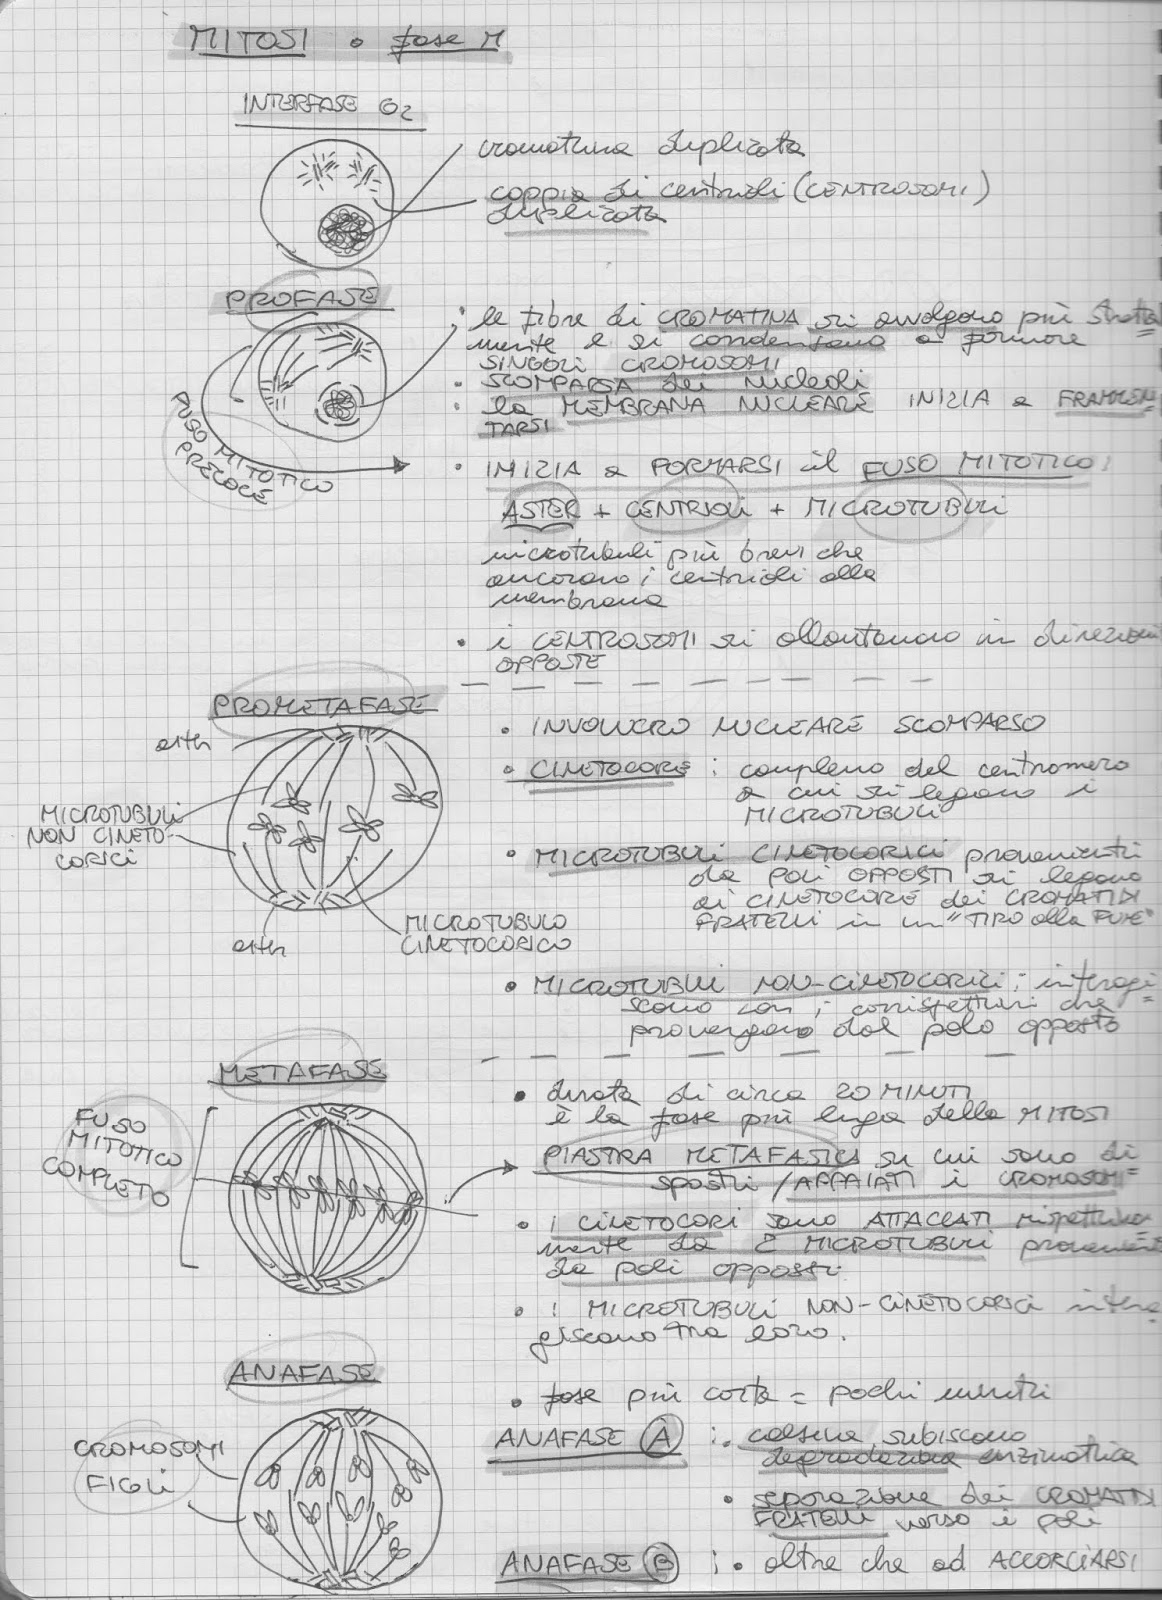 MITOSI o fase M
INTERFASE G2
cromatina duplicata
coppia di centrioli (CENTROSOMI)
duplicata
PROFASE
• le fibre di CROMATINA si avvolgono più stretta=
mente e si condensano a formare
SINGOLI CROMOSOMI
• SCOMPARSA dei nucleoli
• la MEMBRANA NUCLEARE INIZIA a FRAMMEN
TARSI
FUSO MITOTICO
PRECOCE
• INIZIA a FORMARSI il FUSO MITOTICO:
ASTER + CENTRIOLI + MICROTUBULI
microtubuli più brevi che
ancorano i centrioli alla
membrana
• i CENTROSOMI si allontanano in direzioni
OPPOSTE
PROMETAFASE
aster
MICROTUBULI
NON CINETO-
CORICI
aster
MICROTUBULO
CINETOCORICO
• INVOLUCRO NUCLEARE SCOMPARSO
• CINETOCORE: complesso del centromero
a cui si legano i
MICROTUBULI
• MICROTUBULI CINETOCORICI provenienti
da POLI OPPOSTI si legano
ai CINETOCORE dei CROMATIDI
FRATELLI in un "TIRO alla FUNE"
• MICROTUBULI NON-CINETOCORICI: interagi=
scono con i corrispettivi che
provengono dal polo opposto
METAFASE
FUSO
MITOTICO
COMPLETO
• durata di circa 20 MINUTI
è la fase più lunga della MITOSI
PIASTRA METAFASICA su cui sono di
sposti/APPAIATI i CROMOSOMI
• i CINETOCORI sono ATTACCATI rispettiva
mente da 2 MICROTUBULI provenienti
da poli opposti.
• i MICROTUBULI NON-CINETOCORICI intera=
giscono tra loro.
ANAFASE
CROMOSOMI
FIGLI
• fase più corta = pochi minuti
ANAFASE A : • coesine subiscono
degradazione enzimatica
• separazione dei CROMATIDI
FRATELLI verso i poli
ANAFASE B : • oltre che ad ACCORCIARSI